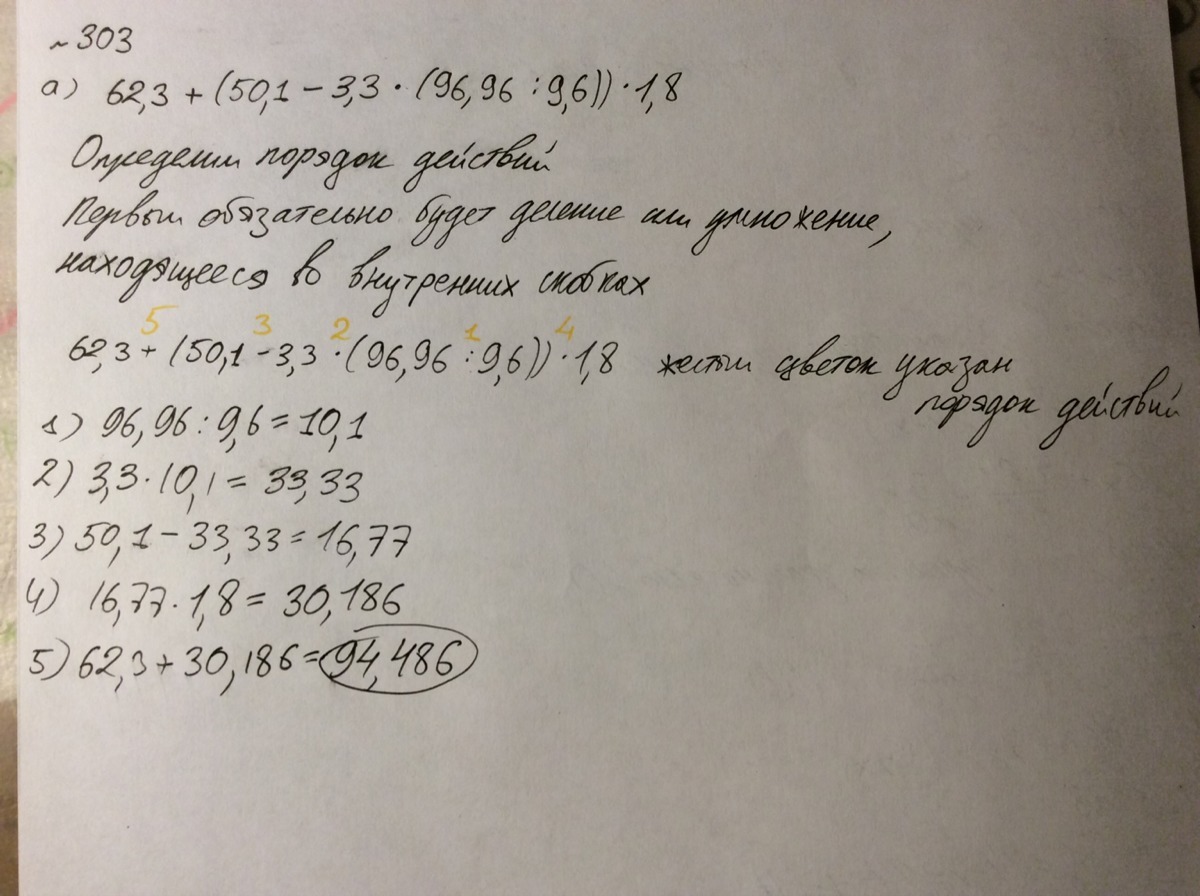 ~303
а) 62,3 + (50,1 - 3,3 · (96,96 : 9,6)) · 1,8
Определим порядок действий
Первым обязательно будет деление или умножение,
находящееся во внутренних скобках
5 3 2 1 4
62,3 + (50,1 - 3,3 · (96,96 : 9,6)) · 1,8 желтым цветом указан
порядок действий
1) 96,96 : 9,6 = 10,1
2) 3,3 · 10,1 = 33,33
3) 50,1 - 33,33 = 16,77
4) 16,77 · 1,8 = 30,186
5) 62,3 + 30,186 = 94,486